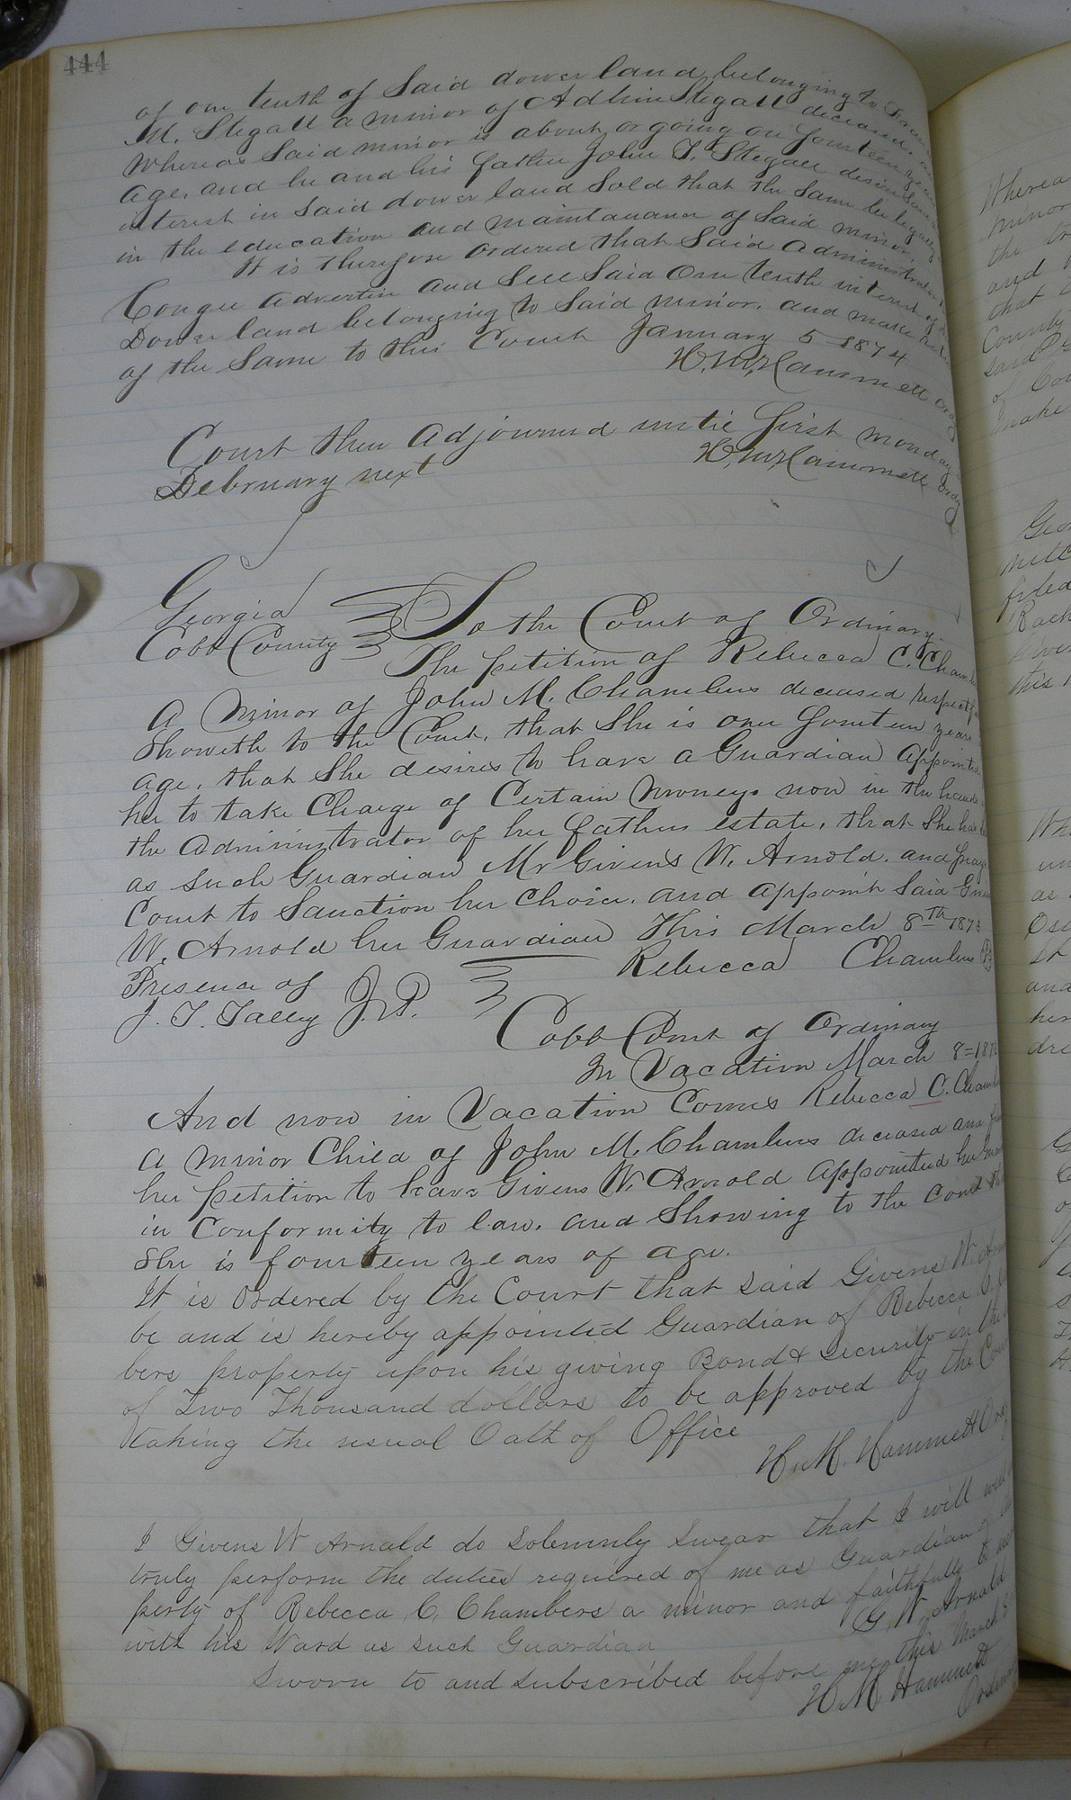 444
of one tenth of Said dower land belonging to
M. Stegall a minor of Adline Stegall deceased, and
Whereas Said minor is about or going on fourteen years
age, and he and his father John T. Stegall desires
interest in Said dower land Sold that the Same be
in the education and maintanance of Said minor,
It is therefore ordered that Said Administrator
advertise and Sell Said One tenth interest of
Dower land belonging to Said minor, and make
of the Same to this Court January 5 1874
H. M. Hammett Ordy
Court then Adjourned until first monday
February next
H. M. Hammett Ordy
Georgia
Cobb County
To the Court of Ordinary
The petition of Rebecca C. Cham
A minor of John M. Chambers deceased respectf
Showeth to the Court, that She is over fourteen years
age, that She desires to have a Guardian appointed
her to take Charge of Certain moneys now in the hands
the Administrator of her fathers estate, that She has
as Such Guardian Mr Givens W. Arnold. and prays
Court to Sanction her Choice. and appoint Said Given
W. Arnold her Guardian This March 8th 187
Presence of
Rebecca Chambers
J. T. Talley J.P.
Cobb Court of Ordinary
In Vacation March 8=187
And now in Vacation Comes Rebecca C. Chamb
a minor Child of John M. Chambers deceased and
her petition to have Givens W. Arnold appointed her
in Conformity to law. and Showing to the Court th
She is fourteen years of age.
It is ordered by the Court that said Givens W. Arn
be and is hereby appointed Guardian of Rebecca
bers property upon his giving Bond & security in the
of Two Thousand dollars to be approved by the Cour
taking the usual Oath of Office
H. M. Hammett Ordy
I Givens W Arnald do Solemnly Swear that I will well
truly perform the duties required of me as Guardian of
perty of Rebecca C. Chambers a minor and faithfully to
with his Ward as such Guardian
G. W. Arnald
Sworn to and subscribed before me this March 8
H. M. Hammett
Ordinary
Wherea
minor
the
and
that
County
said
of
make
Geo